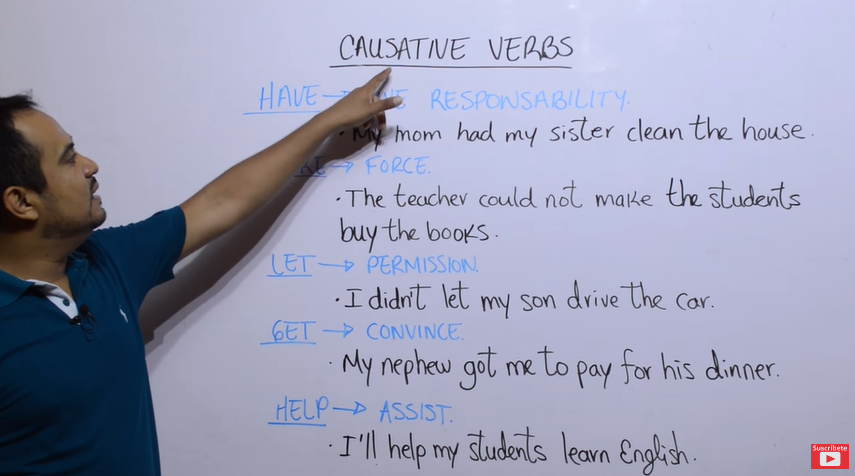 CAUSATIVE VERBS
HAVE → RESPONSABILITY.
· My mom had my sister clean the house.
→ FORCE.
· The teacher could not make the students
buy the books.
LET → PERMISSION.
· I didn't let my son drive the car.
GET → CONVINCE.
· My nephew got me to pay for his dinner.
HELP → ASSIST.
· I'll help my students learn English.
Suscríbete